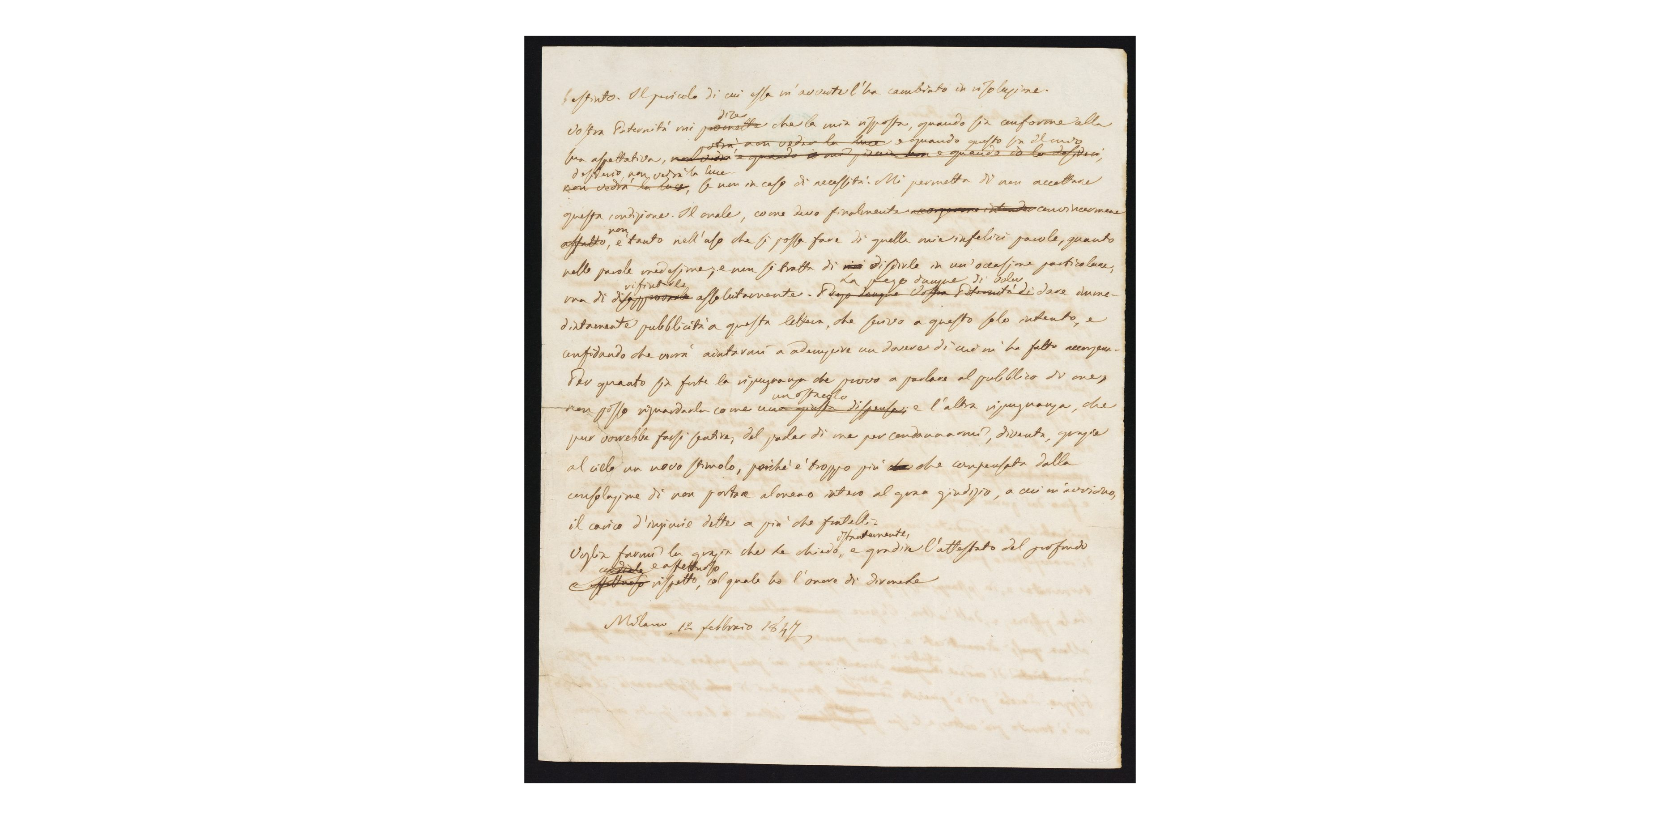 bastinto. Il pericolo di cui essa m'avverte l'ha cambiato in risoluzione.
dice
Vostra Paternità mi permette che la mia risposta, quando sia conforme alla
potrà non vedrà la luce e quando questo sia il mio
sua aspettativa, non vedrà e quando io e quando io lo desideri,
desiderio, non vedrà la luce
non vedrà la luce, se non in caso di necessità. Mi permetta di non accettare
questa condizione. Il male, come devo finalmente convincermene
non
affatto, è tanto nell'uso che si possa fare di quelle mie infelici parole, quanto
nelle parole medesime; e non si tratta di disdirle in un'occasione particolare,
rifiutarle La prego dunque di voler
ma di disapprovarle assolutamente. Prego dunque Vostra Paternità di dare imme-
diatamente pubblicità a questa lettera, che scrivo a questo solo intento, e
confidando che vorrà aiutarmi a adempire un dovere di cui m'ha fatto accorgere.
Per quanto sia forte la ripugnanza che provo a parlare al pubblico di me,
un ostacolo
non posso riguardarla come una giusta dispensa; e l'altra ripugnanza, che
pur vorrebbe farsi sentire, del parlar di me per condannarmi, diventa, grazie
al cielo un novo stimolo, poichè è troppo più che compensata dalla
consolazione di non portar almeno intero al gran giudizio, a cui m'avvicino,
il carico d'ingiurie dette a più che fratelli.
istantemente,
Voglia farmi la grazia che Le chiedo, e gradire l'attestato del profondo
cordiale e affettuoso
e affettuoso rispetto, col quale ho l'onore di dirmele
Milano 12 febbraio 1847